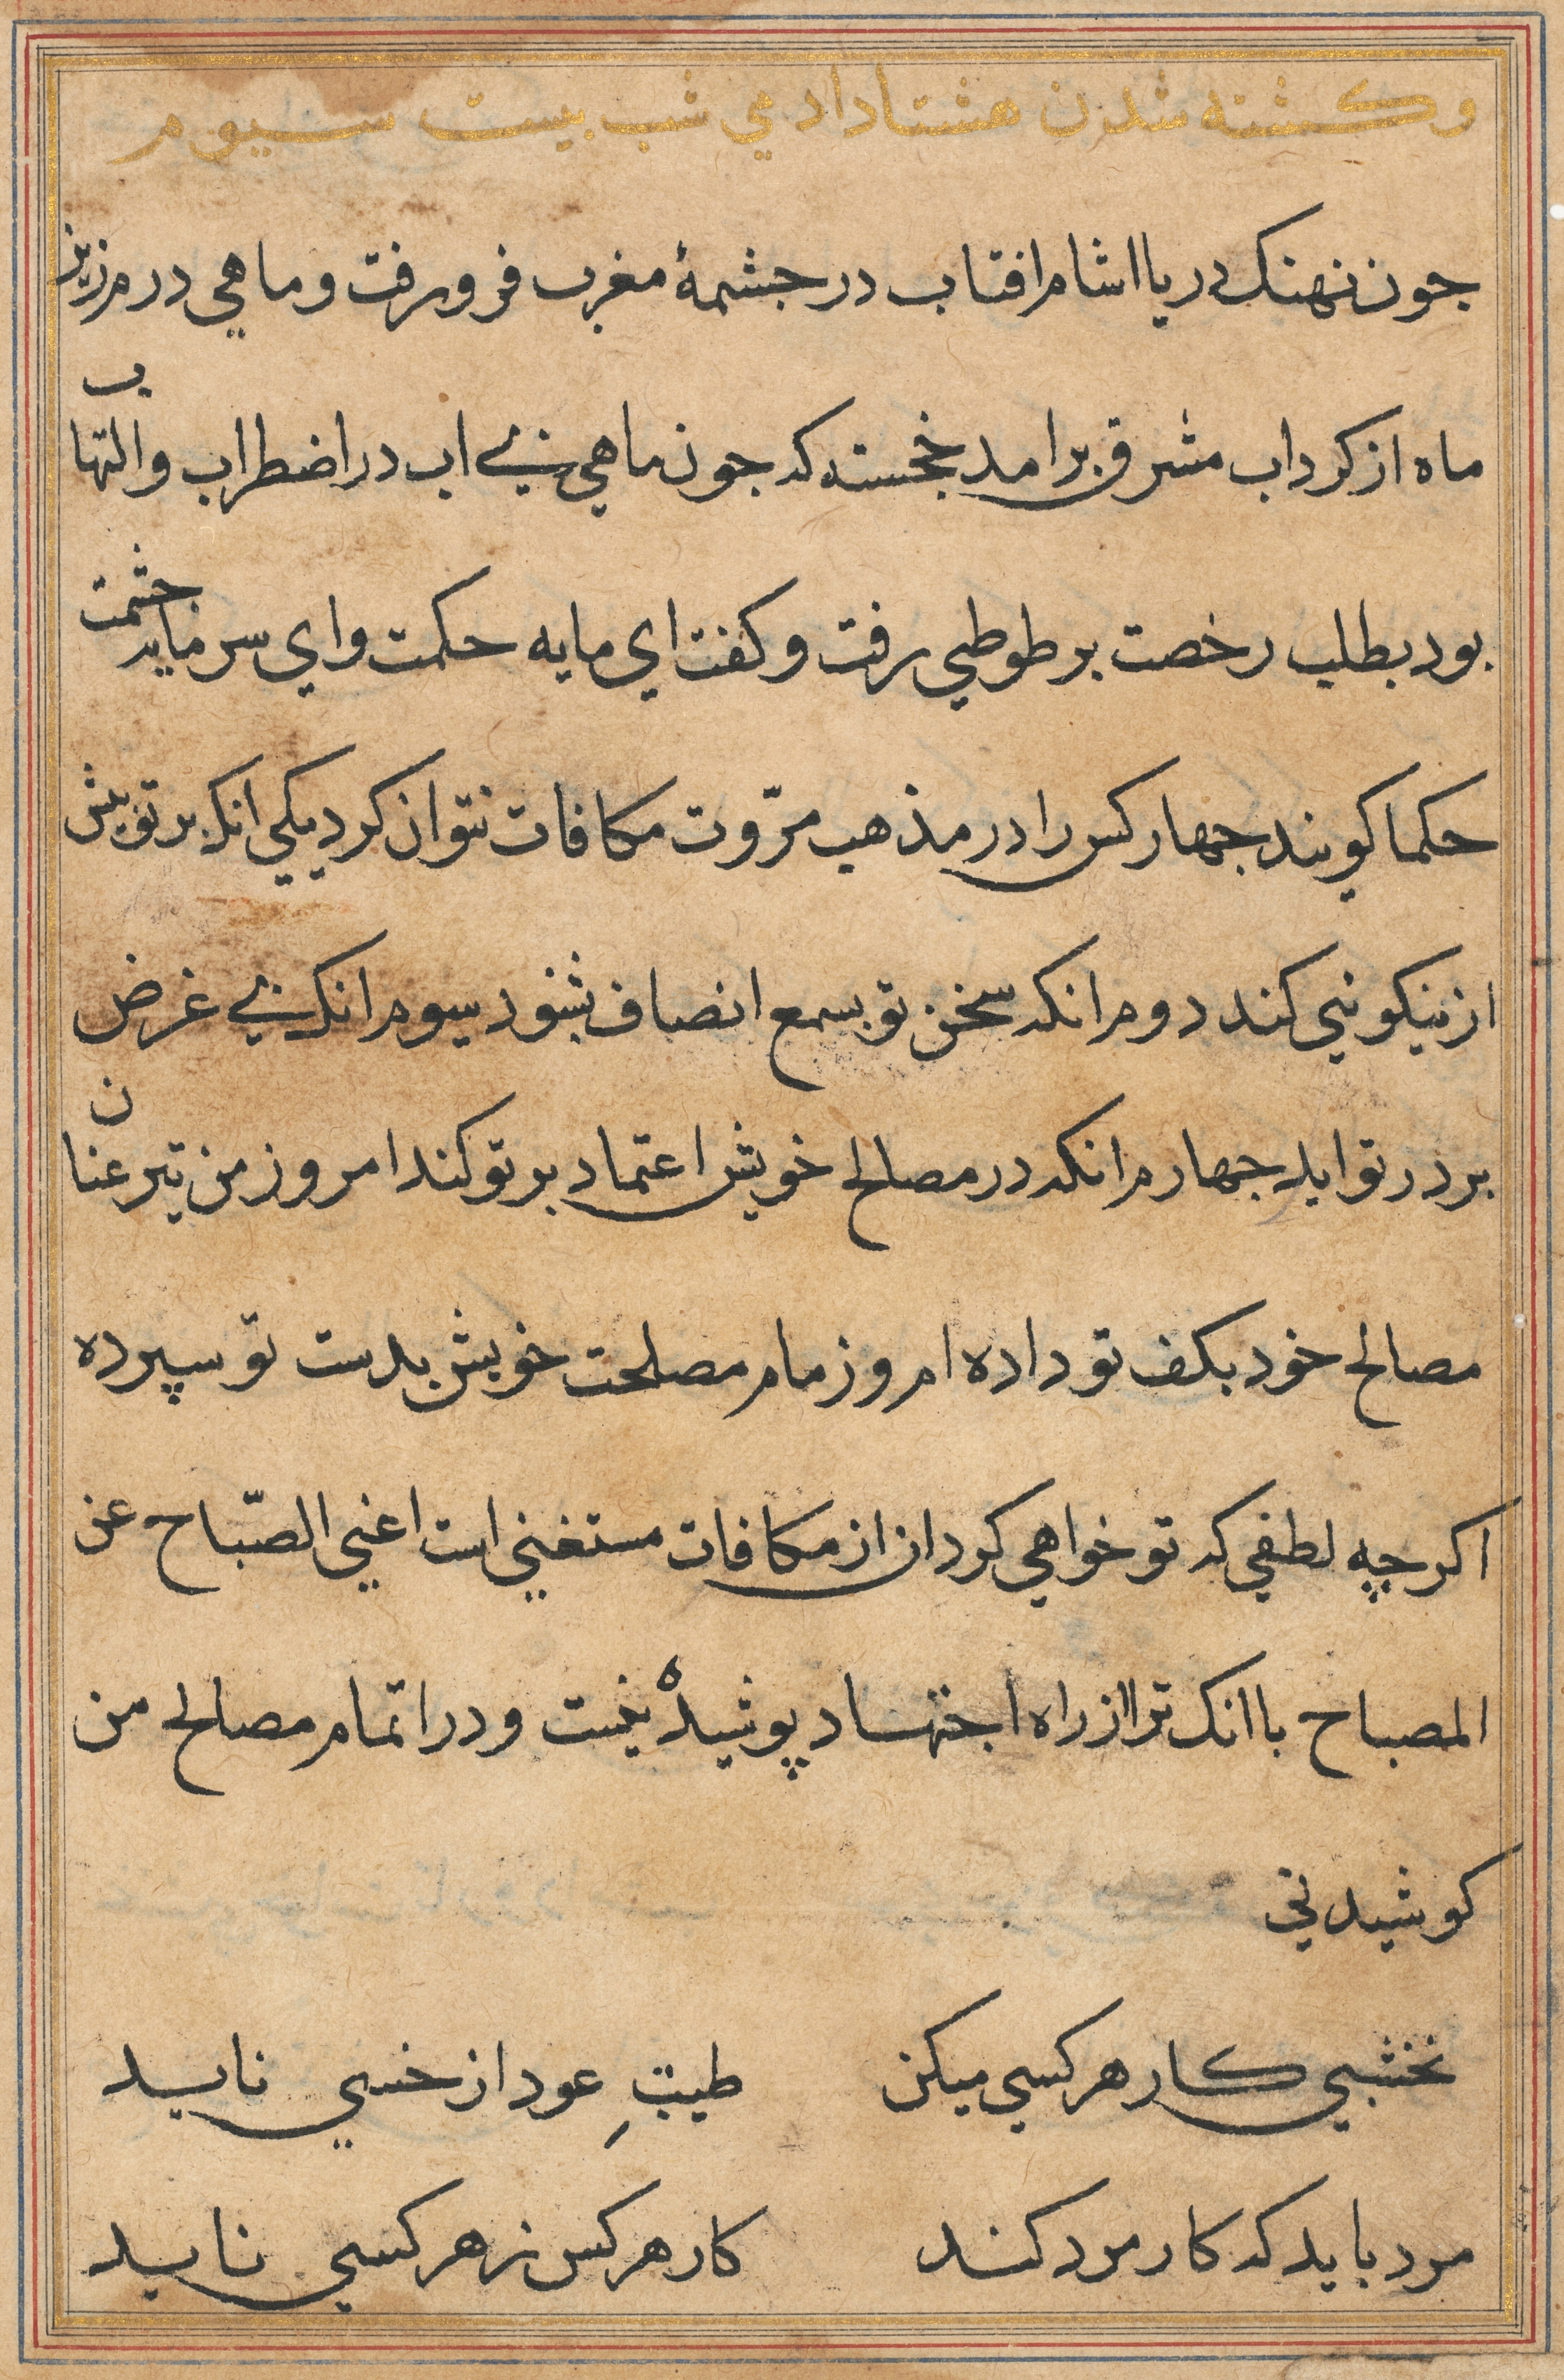 وکشته شدن هشتاد ادمي شب بيست سيوم
جون نهنک دريا اشام افتاب در جشمهٔ مغرب فرو رفت و ماهي درم زرين
ماه از کرداب مشرق برامد خجسته که جون ماهي بي اب در اضطراب و التهاب
بود بطلب رخصت بر طوطي رفت و کفت اي مايه حکمت واي سرمايه حشمت
حکما کويند جهار کس را در مذهب مرّوت مکافات نتوان کرد يکي انکه بر تو بيش
از نيکوئي کند دوم انکه سخن تو بسمع انصاف بشنود سيوم انکه بي غرض
بر در تو ايد جهارم انکه در مصالح خويش اعتماد بر تو کند امروز من نيز عنان
مصالح خود بکف تو داده ام و زمام مصلحت خويش بدست تو سپرده
اکرچه لطفي که تو خواهي کرد ان از مکافات مستغني است اغني الصّباح عن
المصباح با انک ترا از راه اجتهاد پوشيدهٔ نيست و در اتمام مصالح من
کوشيدني
نخشبي کار هر کسي ميکن	طيبِ عود از خسي نايد
مرد بايد که کار مرد کند	کار هر کس ز هر کسي نايد